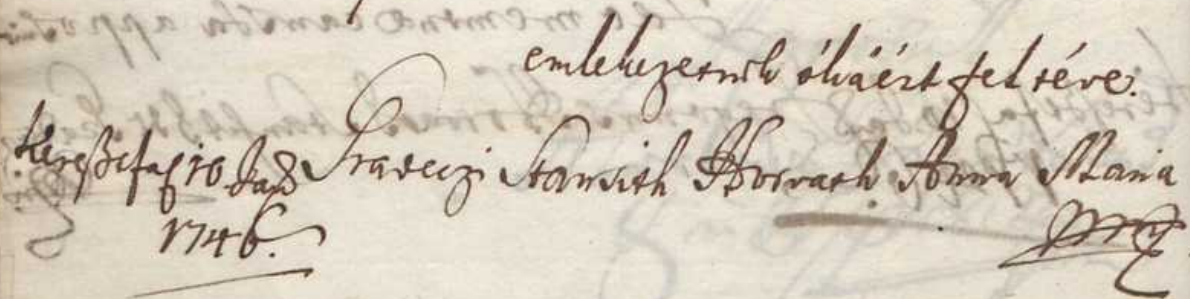 emlekezetnek okáért fel téve.
Kereßtfa 10 Jan Gradeczi Stansith Horvath Anna Maria
1746. mp